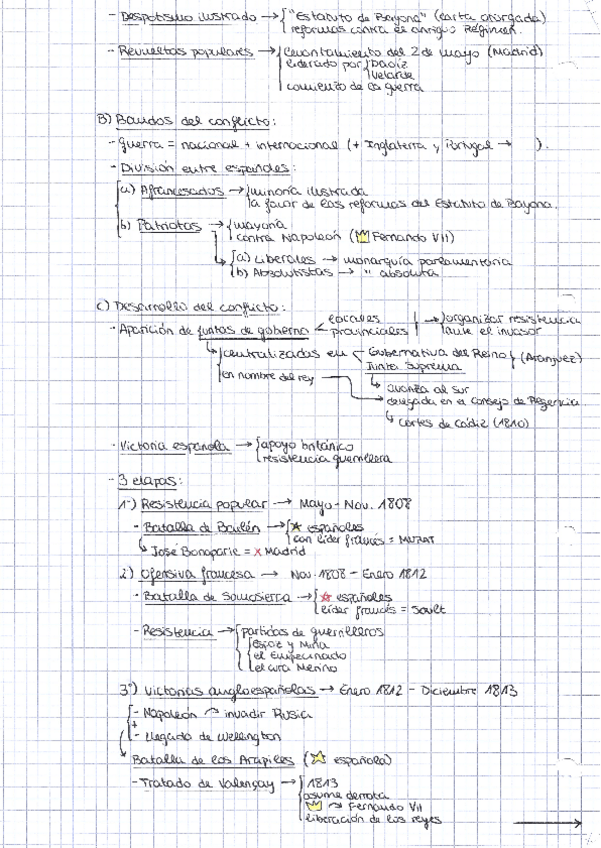 - Despotismo ilustrado → "Estatuto de Bayona" (carta otorgada)
reformas contra el antiguo Régimen.
- Revueltas populares → levantamiento del 2 de mayo (Madrid)
liderado por Daoiz
Velarde
comienzo de la guerra
B) Bandos del conflicto:
- Guerra = nacional + internacional (+ Inglaterra y Portugal → ).
- División entre españoles:
a) Afrancesados → minoría ilustrada
a favor de las reformas del Estatuto de Bayona.
b) Patriotas → mayoría
contra Napoleón ( Fernando VII)
a) Liberales → monarquía parlamentaria
b) Absolutistas → " absoluta
C) Desarrollo del conflicto:
- Aparición de juntas de gobierno locales
provinciales → organizar resistencia
ante el invasor
centralizadas en Gubernativa del Reino (Aranjuez)
Junta Suprema
en nombre del rey
↳ avanza al sur
→ delegada en el Consejo de Regencia
↳ Cortes de Cádiz (1810)
- Victoria española → apoyo británico
resistencia guerrillera
- 3 etapas:
1º) Resistencia popular → Mayo - Nov. 1808
- Batalla de Bailén → ★ españoles
con líder francés = MURAT
↳ José Bonaparte = x Madrid
2) Ofensiva francesa → Nov. 1808 - Enero 1812
- Batalla de Somosierra → ☆ españoles
líder francés = Soult
- Resistencia → partidas de guerrilleros
Espoz y Mina
el Empecinado
el cura Merino
3º) Victorias angloespañolas → Enero 1812 - Diciembre 1813
- Napoleón → invadir Rusia
+
- Llegada de Wellington
Batalla de los Arapiles (☆ española)
- Tratado de Valençay → 1813
asume derrota
→ Fernando VII
liberación de los reyes
→